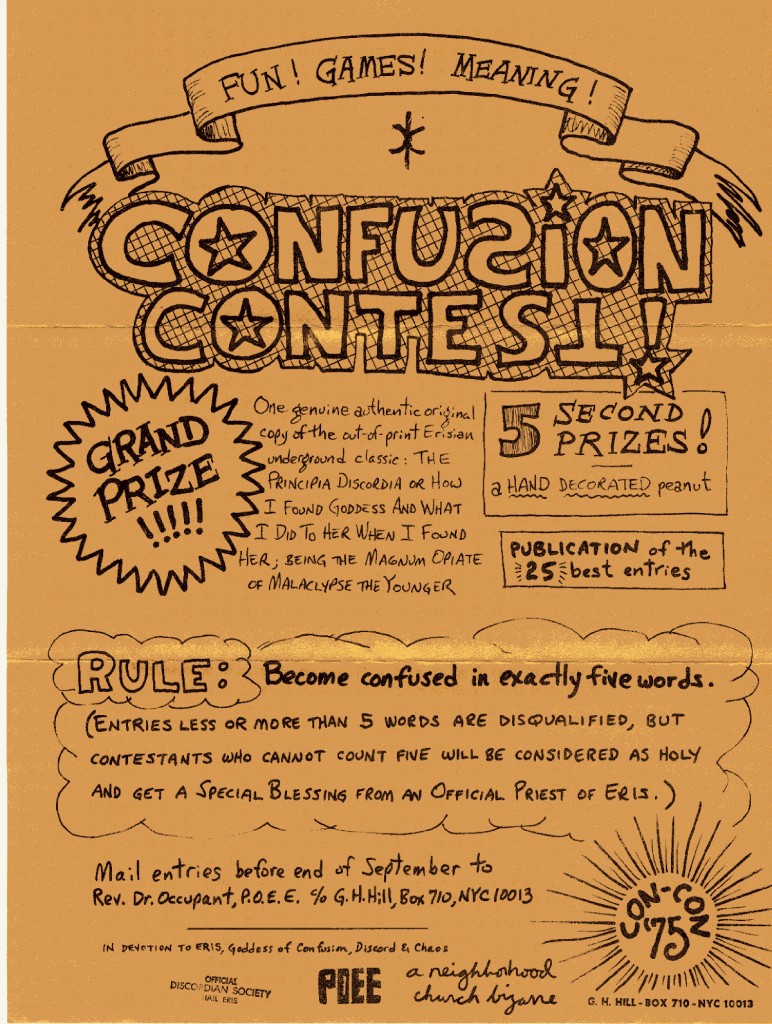 FUN! GAMES! MEANING!
CONFUSION
CONTEST!
GRAND
PRIZE
!!!!!
One genuine authentic original
copy of the out-of-print Erisian
underground classic: THE
PRINCIPIA DISCORDIA OR HOW
I FOUND GODDESS AND WHAT
I DID TO HER WHEN I FOUND
HER; BEING THE MAGNUM OPIATE
OF MALACLYPSE THE YOUNGER
5 SECOND
PRIZES!
a HAND DECORATED peanut
PUBLICATION of the
25 best entries
RULE: Become confused in exactly five words.
(ENTRIES LESS OR MORE THAN 5 WORDS ARE DISQUALIFIED, BUT
CONTESTANTS WHO CANNOT COUNT FIVE WILL BE CONSIDERED AS HOLY
AND GET A SPECIAL BLESSING FROM AN OFFICIAL PRIEST OF ERIS.)
Mail entries before end of September to
Rev. Dr. Occupant, P.O.E.E. c/o G.H.Hill, Box 710, NYC 10013
CON-CON
'75
IN DEVOTION TO ERIS, Goddess of Confusion, Discord & Chaos
OFFICIAL
DISCORDIAN SOCIETY
HAIL ERIS
POEE
a neighborhood
church bizarre
G. H. HILL - BOX 710 - NYC 10013